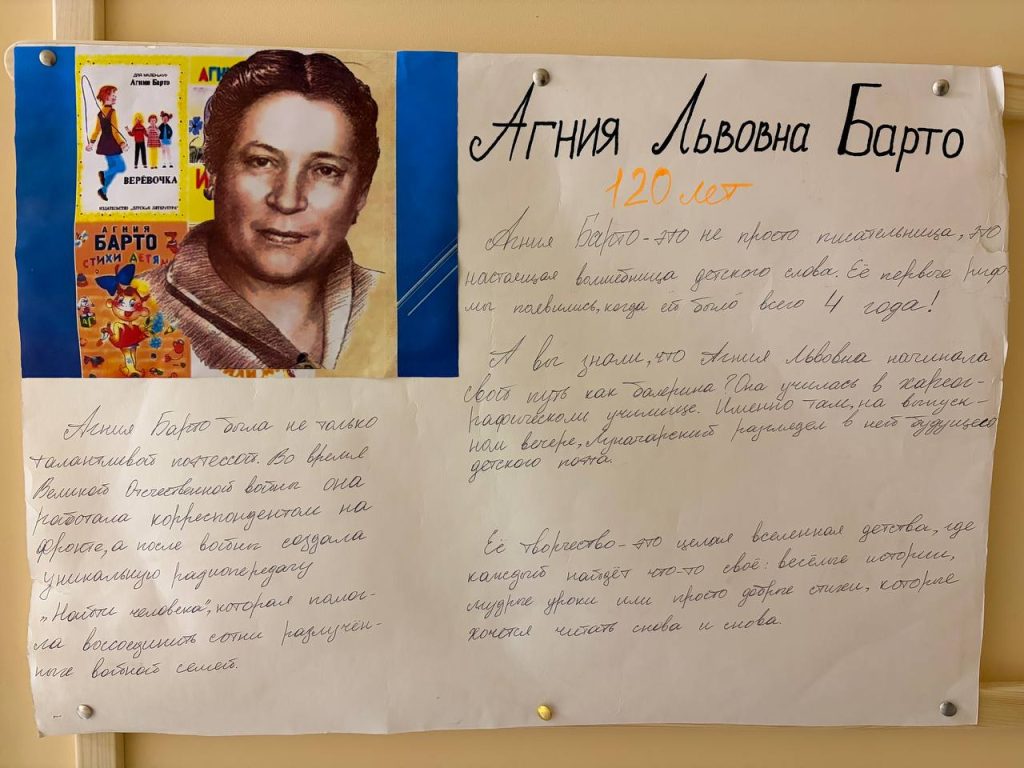 ДЛЯ МАЛЕНЬКИХ
Агния Барто
ВЕРЁВОЧКА
ИЗДАТЕЛЬСТВО "ДЕТСКАЯ ЛИТЕРАТУРА"
АГНИЯ
БАРТО
СТИХИ ДЕТЯМ
Агния Львовна Барто
120 лет
Агния Барто - это не просто писательница, это
настоящая волшебница детского слова. Её первые риф-
мы появились, когда ей было всего 4 года!
А вы знали, что Агния Львовна начинала
свой путь как балерина? Она училась в хореог-
рафическом училище. Именно там, на выпуск-
ном вечере, Луначарский разглядел в ней будущего
детского поэта.
Её творчество - это целая вселенная детства, где
каждый найдёт что-то своё: весёлые истории,
мудрые уроки или просто добрые стихи, которые
хочется читать снова и снова.
Агния Барто была не только
талантливой поэтессой. Во время
Великой Отечественной войны она
работала корреспондентом на
фронте, а после войны создала
уникальную радиопередачу
„Найти человека", которая помог-
ла воссоединить сотни разлучён-
ных войной семей.